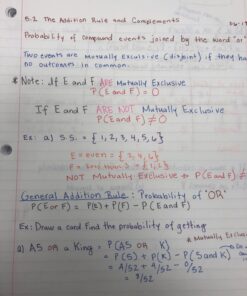 5.2 The Addition Rule and Complements
Probability of compound events joined by the word "or"
Two events are Mutually Exclusive (disjoint) if they ha
no outcomes in common.
* Note: If E and F ARE Mutually Exclusive
P(E and F) = 0
If E and F ARE NOT Mutually Exclusive
P(E and F) ≠ 0
Ex: a) S.S. = {1, 2, 3, 4, 5, 6}
E = even = {2, 4, 6}
F = {1, 2, 3}
NOT Mutually Exclusive → P(E and F) ≠
General Addition Rule: Probability of 'OR'
P(E or F) = P(E) + P(F) - P(E and F)
Ex: Draw a card find the probability of getting
* Mutually Exclus
a) A 5 OR a King = P(A5 OR K)
= P(5) + P(K) - P(5 and K)
= 4/52 + 4/52 - 0/52
= 8/52